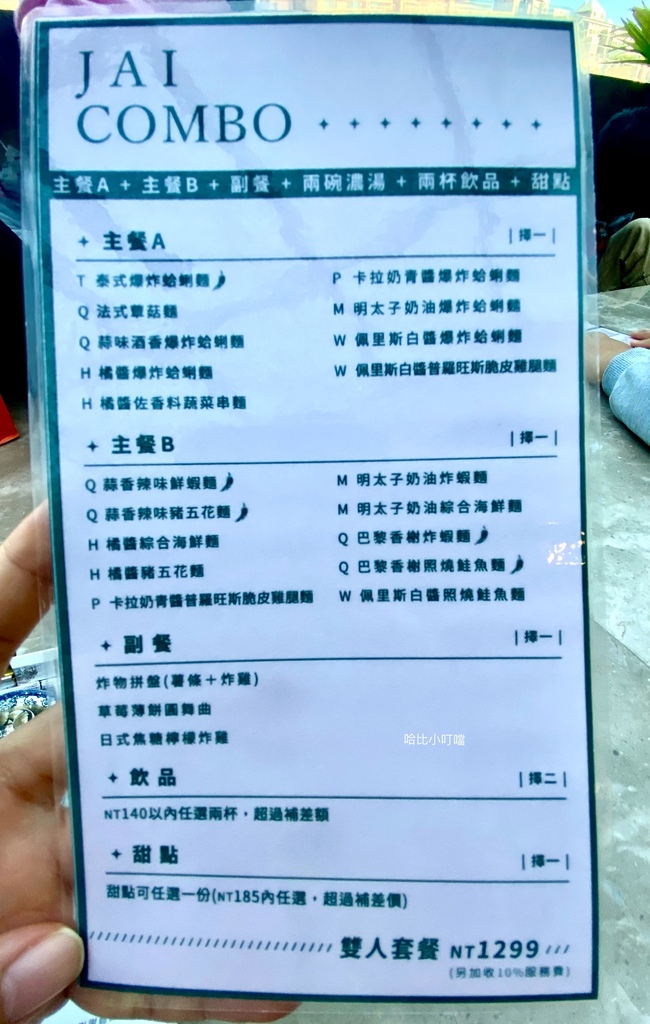 JAI
COMBO
主餐A + 主餐B + 副餐 + 兩碗濃湯 + 兩杯飲品 + 甜點
主餐A |擇一|
T 泰式爆炸蛤蜊麵
Q 法式蕈菇麵
Q 蒜味酒香爆炸蛤蜊麵
H 橘醬爆炸蛤蜊麵
H 橘醬佐香料蔬菜串麵
P 卡拉奶青醬爆炸蛤蜊麵
M 明太子奶油爆炸蛤蜊麵
W 佩里斯白醬爆炸蛤蜊麵
W 佩里斯白醬普羅旺斯脆皮雞腿麵
主餐B |擇一|
Q 蒜香辣味鮮蝦麵
Q 蒜香辣味豬五花麵
H 橘醬綜合海鮮麵
H 橘醬豬五花麵
P 卡拉奶青醬普羅旺斯脆皮雞腿麵
M 明太子奶油炸蝦麵
M 明太子奶油綜合海鮮麵
Q 巴黎香榭炸蝦麵
Q 巴黎香榭照燒鮭魚麵
W 佩里斯白醬照燒鮭魚麵
副餐 |擇一|
炸物拼盤(薯條+炸雞)
草莓薄餅圓舞曲
日式焦糖檸檬炸雞
哈比小叮噹
飲品 |擇二|
NT140以內任選兩杯，超過補差額
甜點 |擇一|
甜點可任選一份(NT185內任選，超過補差價)
雙人套餐 NT1299
(另加收10%服務費)